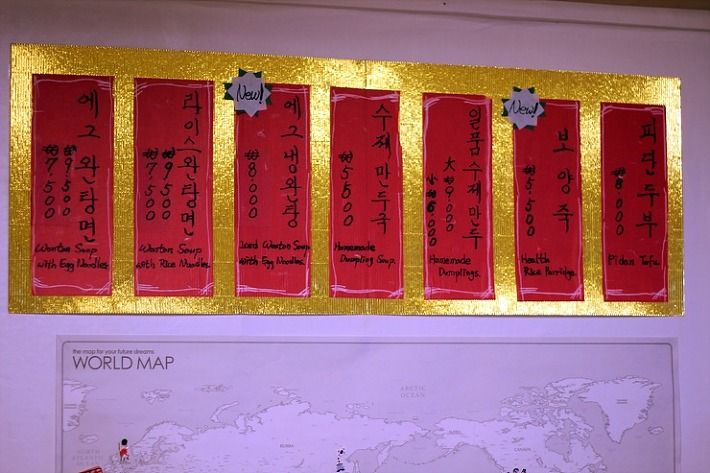 에그완탕면
₩9,500
₩7,500
Wontan Soup
with Egg Noodles.
라이스완탕면
₩9,500
₩7,500
Wontan Soup
with Rice Noodles.
New!
에그냉완탕
₩8000
Wontan Soup
with Egg Noodles
수제만두국
₩5500
Homemade
Dumpling Soup.
일품수제만두
大₩9000
小₩6000
Homemade
Dumplings.
New!
보양죽
₩5,500
Health
Rice Porridge.
피단두부
₩8000
Pidan Tofu.
the map for your future dreams
WORLD MAP
ARCTIC
OCEAN
NORTH
ATLANTIC
RUSSIA